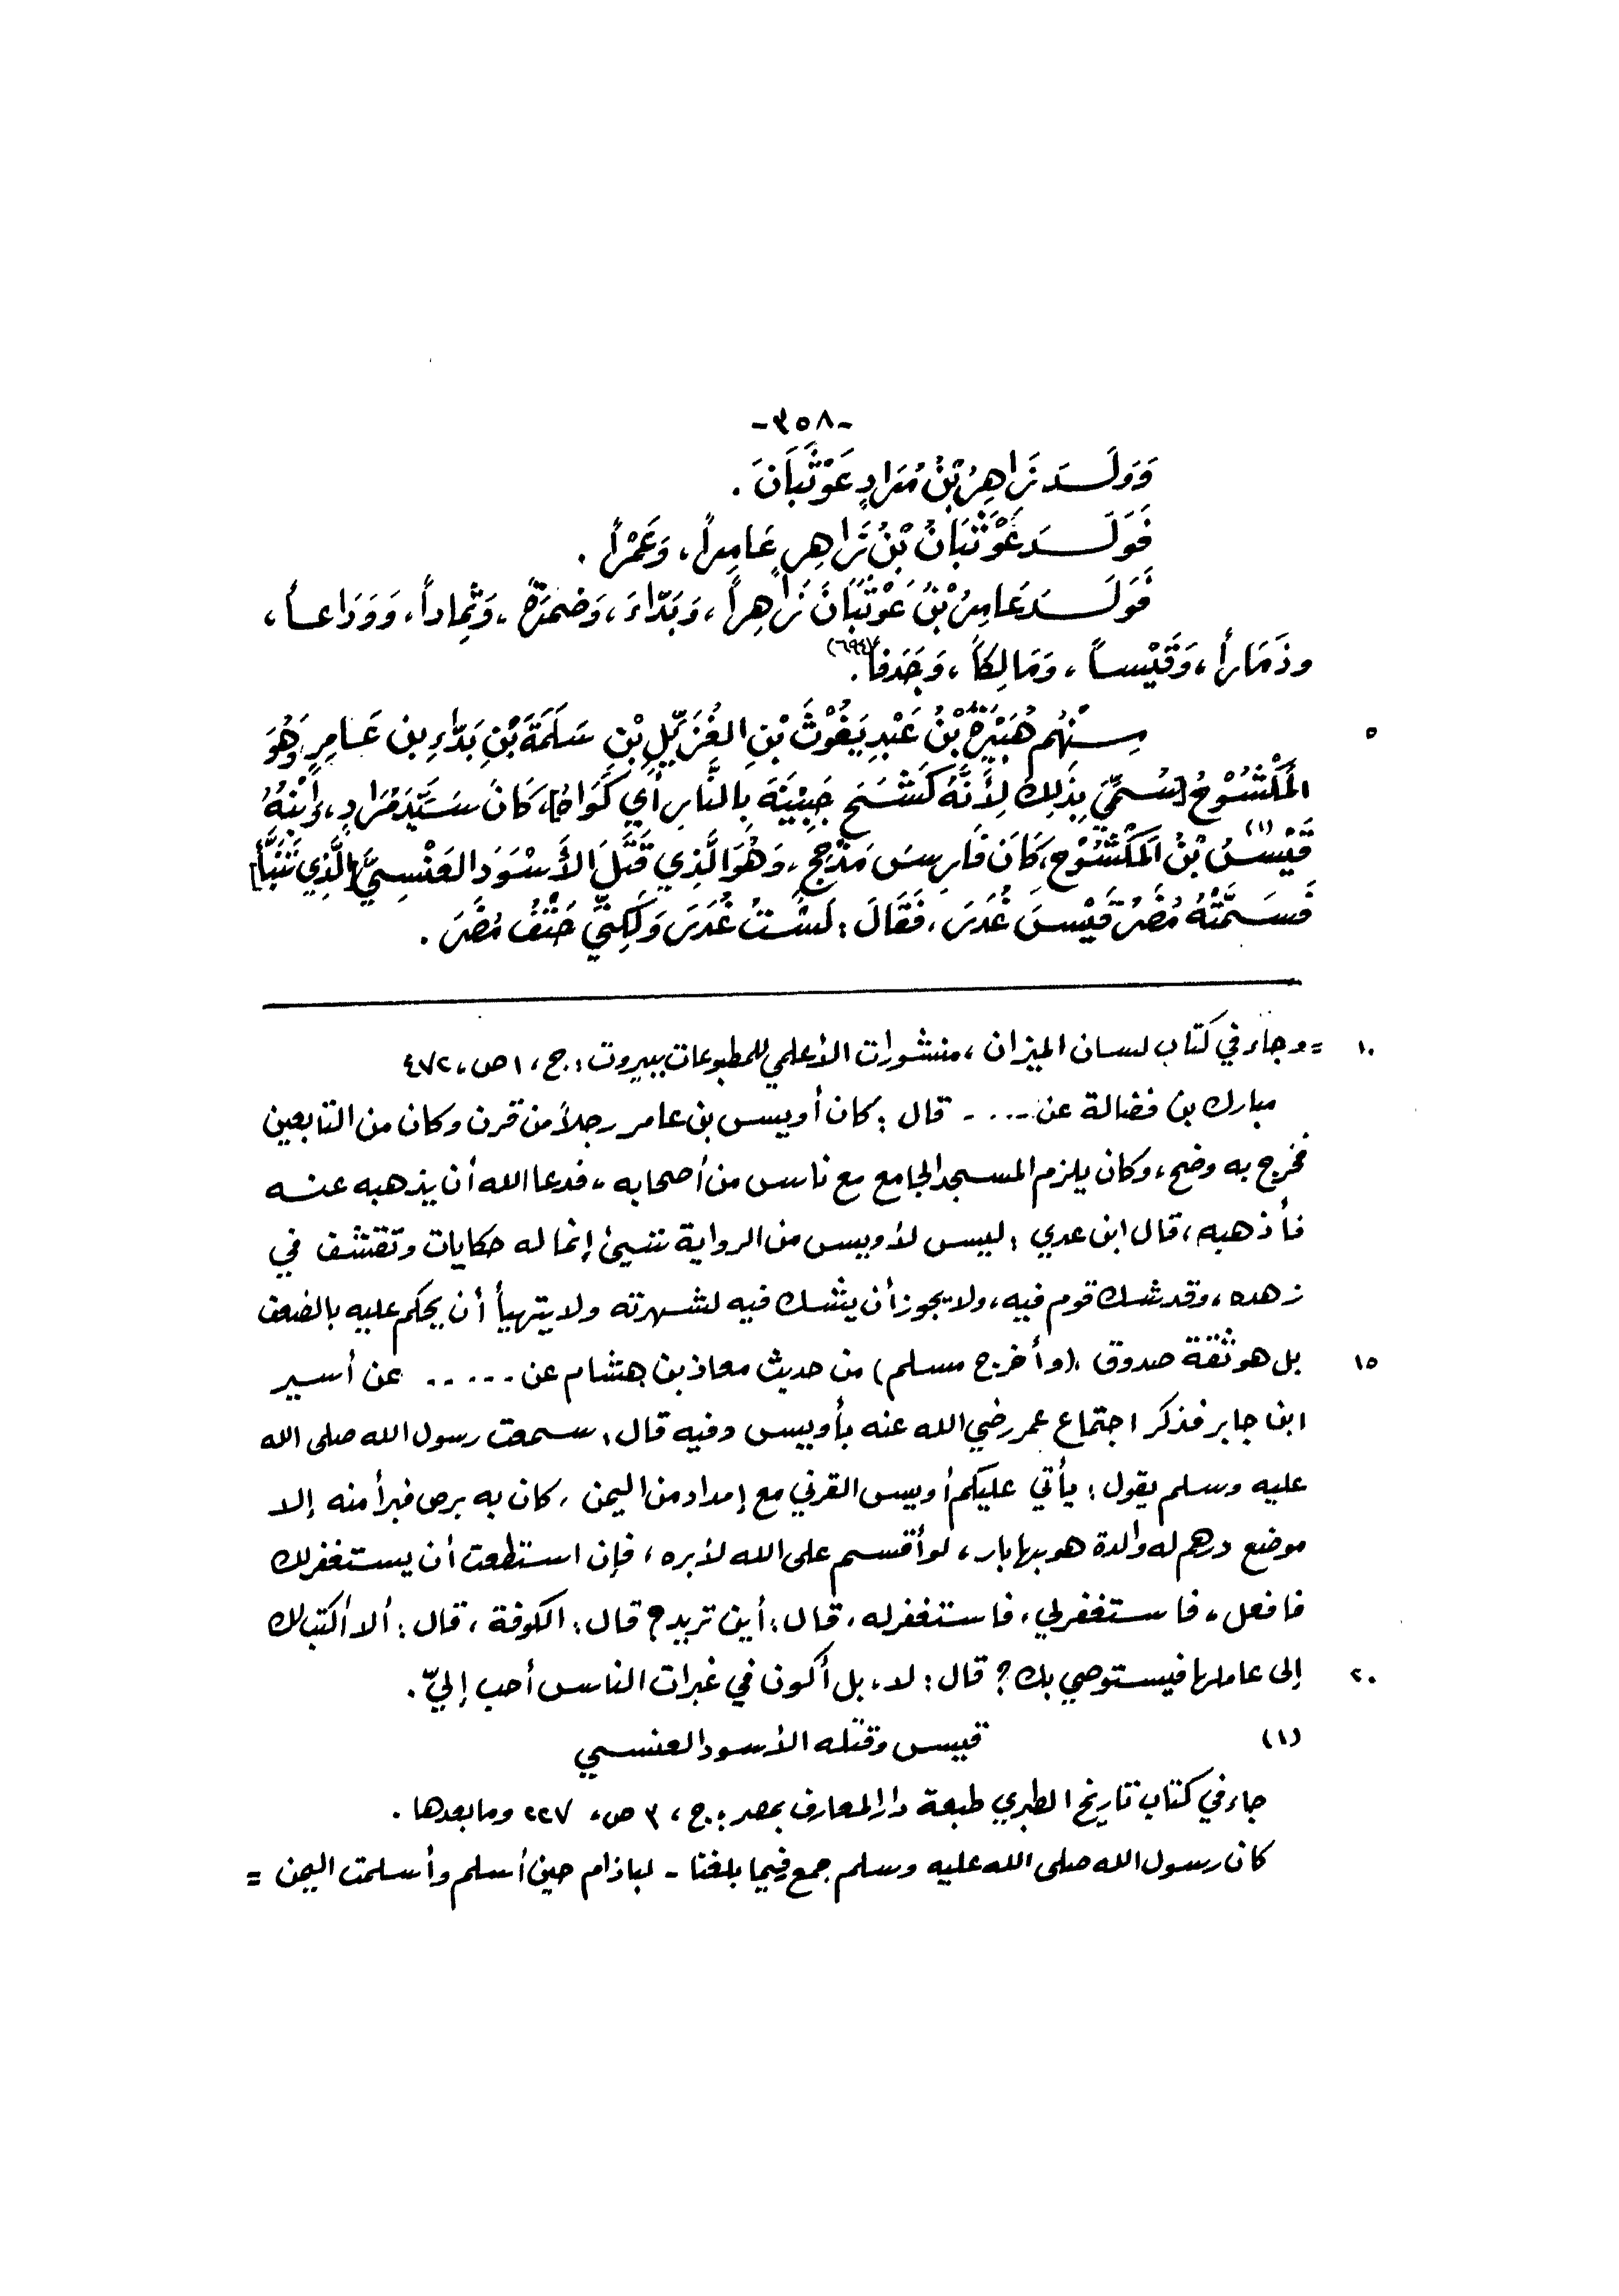 -٣٥٨-
وَوَلَدَ زَاهِرُ بْنُ مُرَادٍ عَوْثَبَانَ .
فَوَلَدَ عَوْثَبَانُ بْنُ زَاهِرٍ عَامِراً، وَعَمْراً .
فَوَلَدَ عَامِرُ بْنُ عَوْثَبَانَ زَاهِراً، وَبَدَّاءَ، وَضَمْرَةَ، وَثِمَاداً، وَوَدَاعاً،
٥
وذَمَاراً، وَقَيْساً، وَمَالِكاً، وَجَدَفاً (٦٩٤٧) .
مِنْهُم هُبَيْرَةُ بْنُ عَبْدِ يَغُوثَ بْنِ الغُزَيِّلِ بْنِ سَلَمَةَ بْنِ بَدَّاءِ بن عَامِرٍ، وَهُوَ
المَكْشُوحُ [سُمِّيَ بِذَلِكَ لِأَنَّهُ كَشَحَ جَبِيْنَهُ بِالنَّارِ أَي كَوَاهُ]، كَانَ سَيِّدَ مُرَادٍ، وَابْنُهُ
قَيْسُ بْنُ المَكْشُوحِ (١)، كَانَ فَارِسَ مَذْحِجٍ، وَهُوَ الَّذِي قَتَلَ الأَسْوَدَ العَنْسِيَّ [الَّذِي تَنَبَّأَ]
فَسَمَّتْهُ مُضَرُ قَيْسَ غُدَرَ، فَقَالَ: لَسْتُ غُدَرَ وَلَكِنِّي حَتْفُ مُضَرَ .
١٠
= وجاء في كتاب لسان الميزان، منشورات الأعلمي للمطبوعات ببيروت: ج، ١ ص، ٤٧٢
مبارك بن فضالة عن .... قال: كان أويس بن عامر رجلاً من قرن وكان من التابعين
فخرج به وضح، وكان يلزم المسجد الجامع مع ناس من أصحابه، فدعا الله أن يذهبه عنه
فأذهبه، قال ابن عدي: ليس لأويس من الرواية شيئ إنما له حكايات وتقشف في
زهده، وقد شك قوم فيه، ولا يجوز أن يشك فيه لشهرته ولا يتهيأ أن يحكم عليه بالضعف
١٥
بل هو ثقة صدوق، (وأخرج مسلم) من حديث معاذ بن هشام عن ..... عن أسير
ابن جابر فذكر اجتماع عمر رضي الله عنه بأويس وفيه قال: سمعت رسول الله صلى الله
عليه وسلم يقول: يأتي عليكم أويس القرني مع إمداد من اليمن، كان به برص فبرأ منه إلا
موضع درهم له والدة هو بها بار، لو أقسم على الله لأبره، فإن استطعت أن يستغفر لك
فافعل، فاستغفر لي، فاستغفر له، قال: أين تريد؟ قال: الكوفة، قال: ألا أكتب لك
٢٠
إلى عاملها فيستوصي بك؟ قال: لا، بل أكون في غبرات الناس أحب إليّ .
(١) قيس وقتله الأسود العنسي
جاء في كتاب تاريخ الطبري طبعة دار المعارف بمصر: ج، ٣ ص، ٢٢٧ وما بعدها .
كان رسول الله صلى الله عليه وسلم جمع فيما بلغنا - لباذام حين أسلم وأسلمت اليمن =